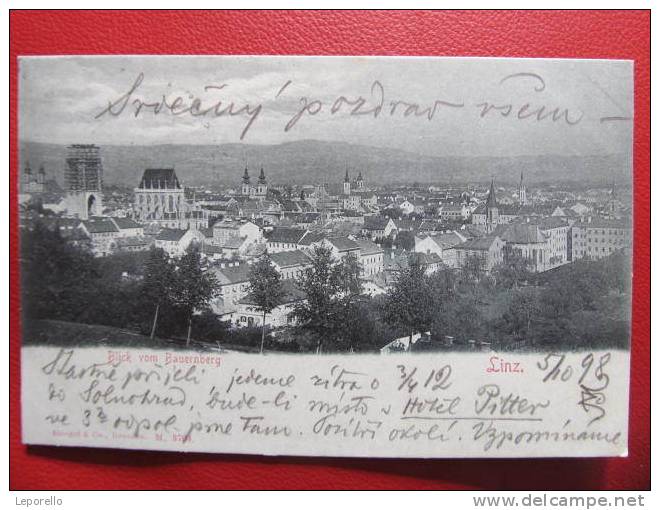 Srdečný pozdrav všem
Blick vom Bauernberg
Linz.
5/10 98
Šťastně přijeli, jedeme zítra o 3/4 12
do Solnohrad, bude-li místo v Hotel Pitter
ve 3 odpol jsme tam. Pozítří okolí. Vzpomínáme
Stengel & Co., Dresden. M.
Leporello
http://www.delcampe.net